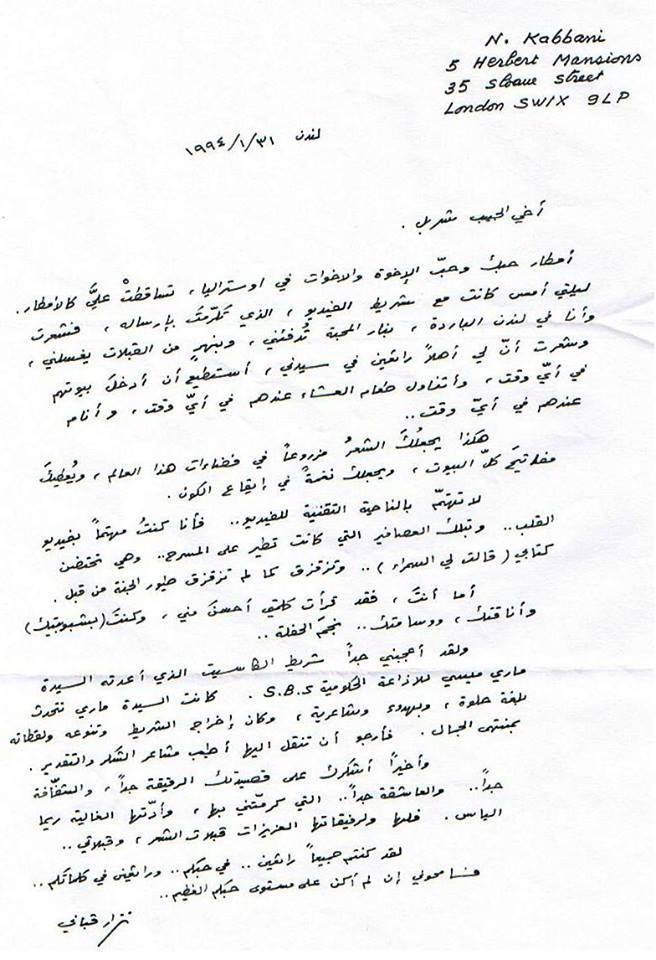 N. Kabbani
5 Herbert Mansions
35 Sloane Street
London SW1X 9LP
لندن ١٩٩٤/١/٣١
أخي الحبيب شربل .
أمطار حبك وحبّ الإخوة والاخوات في اوستراليا ، تساقطتْ عليَّ كالأمطار .
ليلتي أمس كانت مع شريط الفيديو ، الذي تكرّمتَ بإرساله ، فشعرت
وأنا في لندن الباردة ، بنار المحبة تُدفئني ، وبنهرٍ من القبلات يغسلني ،
وشعرت أنّ لي أهلاً رائعين في سيدني ، أستطيع أن أدخلَ بيوتهم
في أيّ وقت ، وأتناول طعام العشاء عندهم في أيّ وقت ، وأنام
عندهم في أيّ وقت ..
هكذا يجعلُكَ الشعرُ مزروعاً في فضاءات هذا العالم ، ويُعطيكَ
مفاتيحَ كلّ البيوت ، ويجعلك نغمةً في إيقاع الكون .
لا تهتمّ بالناحية التقنية للفيديو .. فأنا كنتُ مهتماً بفيديو
القلب .. وتبلك العصافير التي كانت تطير على المسرح .. وهي تحتضن
كتابي ( قالت لي السمراء ) .. وتزقزق كما لم تزقزق طيور الجنة من قبل .
أما أنتَ ، فقد قرأت كلمتي أحسنَ مني ، وكنتَ ( ببشوبيتيك )
وأناقتك ، ووسامتك .. نجمَ الحفلة ..
ولقد أعجبني جداً شريط الكاسيت الذي أعدته السيدة
ماري ميسي للاذاعة الحكومية S.B.S . كانت السيدة ماري تتحدث
بلغة حلوة ، وبهدوء وشاعرية ، وكان إخراج الشريط وتنوعه ولقطاته
بمنتهى الجمال . فأرجو أن تنقل اليها أطيب مشاعر الشكر والتقدير .
وأخيراً أشكرك على قصيدتك الرقيقة جداً ، والشفّافة
جداً .. والعاشقة جداً .. التي كرمتني بها ، وأدّتها الغالية ريما
الياس . فلها ولرفيقاتها العزيزات قبلات الشعر ، وقبلاتي ..
لقد كنتم جميعاً رائعين .. في حبكم .. ورائعين في كلماتكم ..
فسامحوني إن لم أكن على مستوى حبكم العظيم ..
نزار قباني